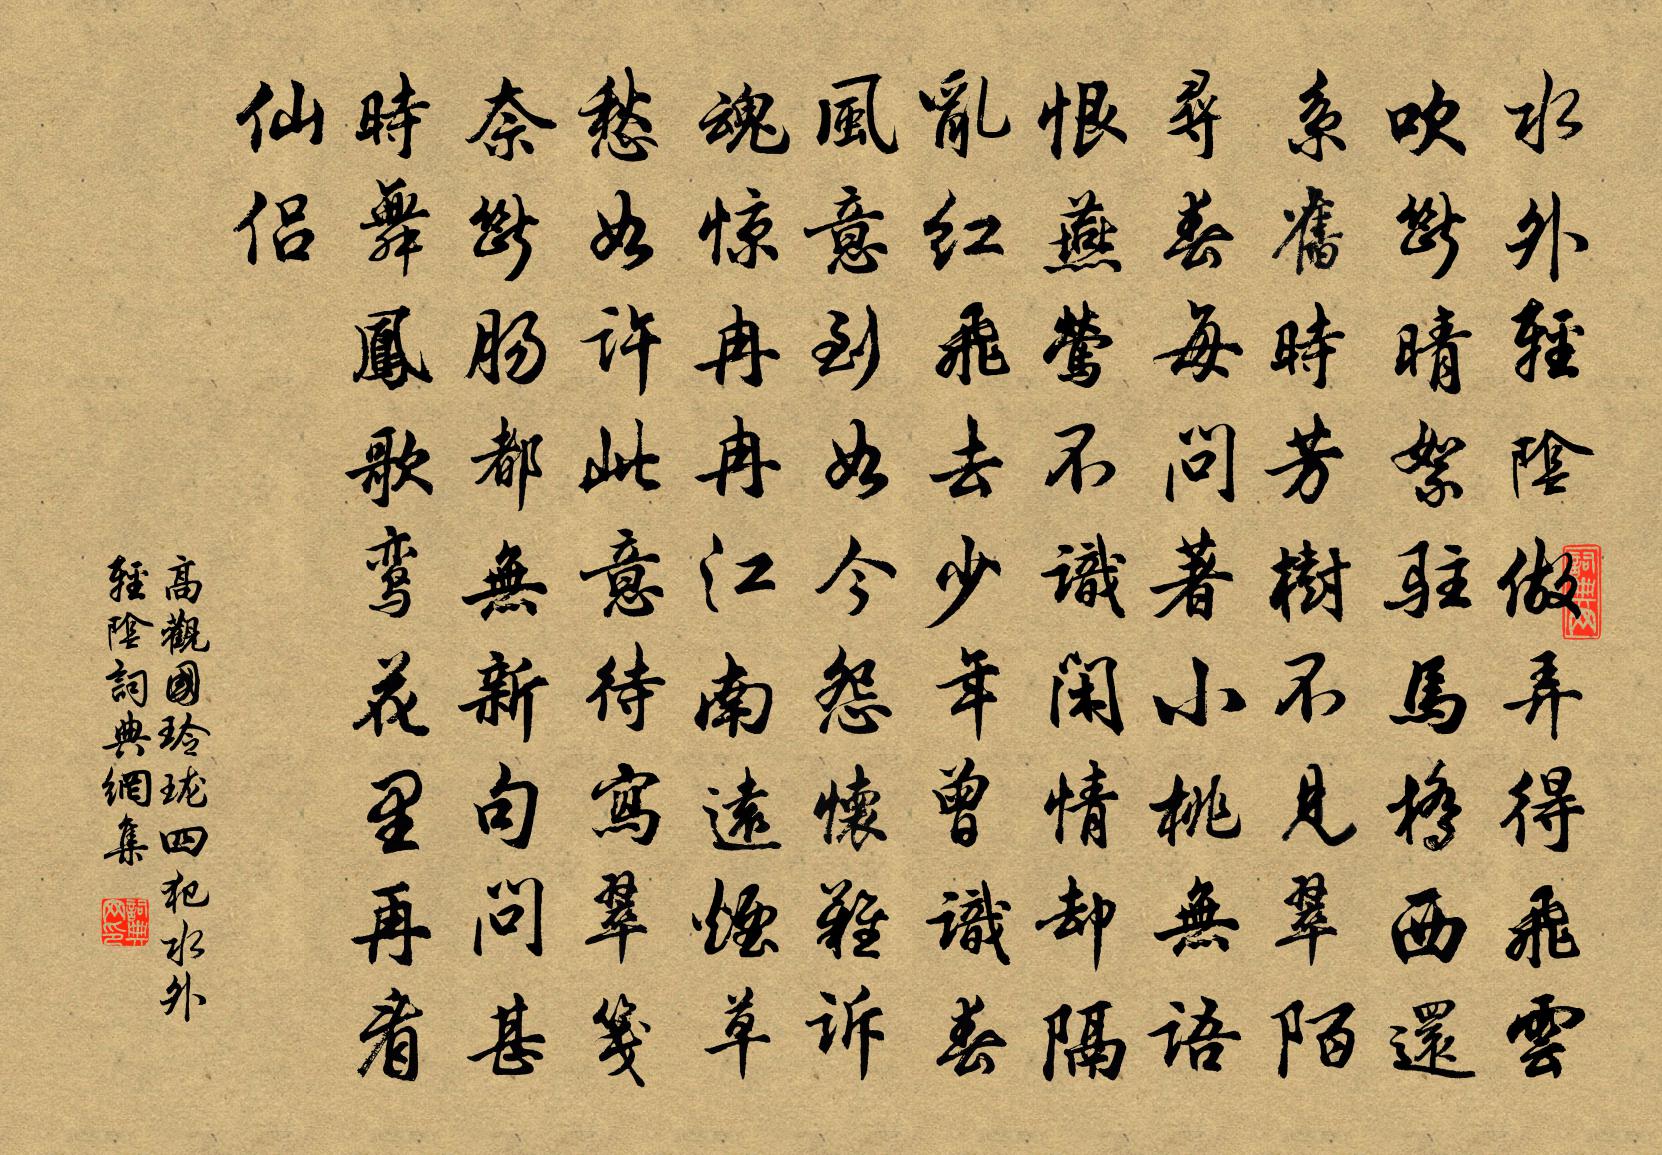 水外輕陰做弄得飛雲
吹斷晴絮駐馬橋西還
系舊時芳樹不見翠陌
尋春每問著小桃無語
恨燕鶯不識閑情却隔
亂紅飛去少年曾識春
風意到如今怨懷難訴
魂惊冉冉江南遠煙草
愁如許此意待寫翠箋
奈斷肠都無新句問甚
時舞鳳歌鸾花里再看
仙侣
高觀國玲珑四犯水外
輕陰詞典網集
詞典网
詞典网印